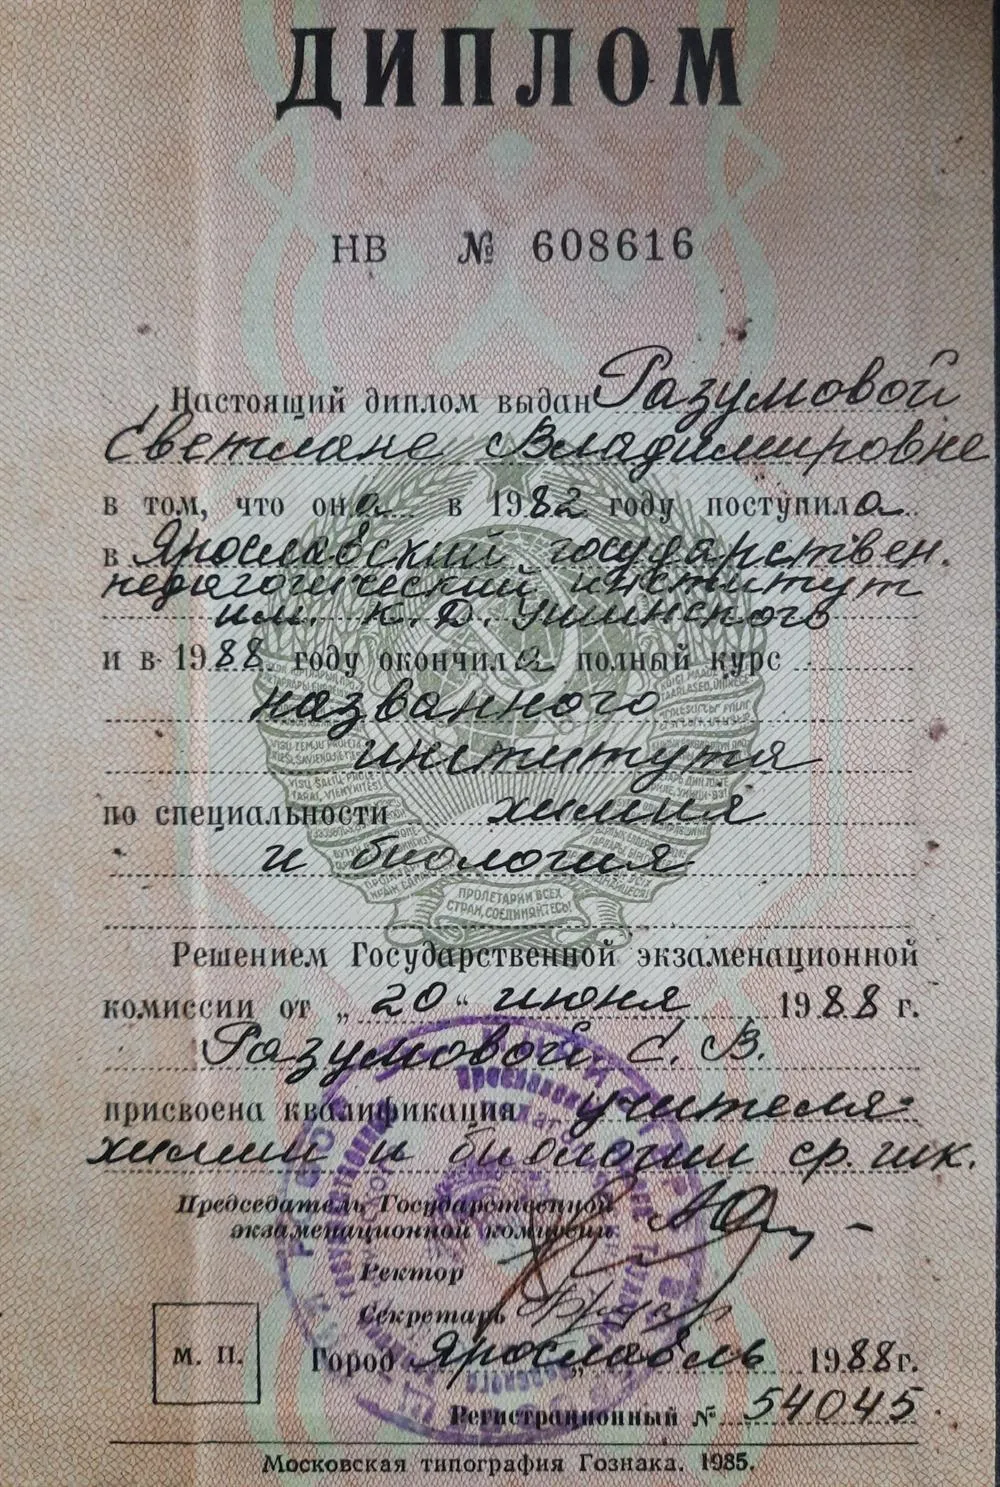 ДИПЛОМ
НВ № 608616
Настоящий диплом выдан Разумовой
Светлане Владимировне
в том, что она в 1982 году поступила
в Ярославский государствен.
педагогический институт
им. К. Д. Ушинского
и в 1988 году окончила полный курс
названного
института
по специальности химия
и биология
ПРОЛЕТАРИИ ВСЕХ
СТРАН, СОЕДИНЯЙТЕСЬ!
Решением Государственной экзаменационной
комиссии от „20“ июня 1988 г.
Разумовой С. В.
присвоена квалификация учителя
химии и биологии ср. шк.
Председатель Государственной
экзаменационной комиссии
Ректор
Секретарь
М. П.
Город Ярославль 1988 г.
Регистрационный № 54045
Московская типография Гознака. 1985.